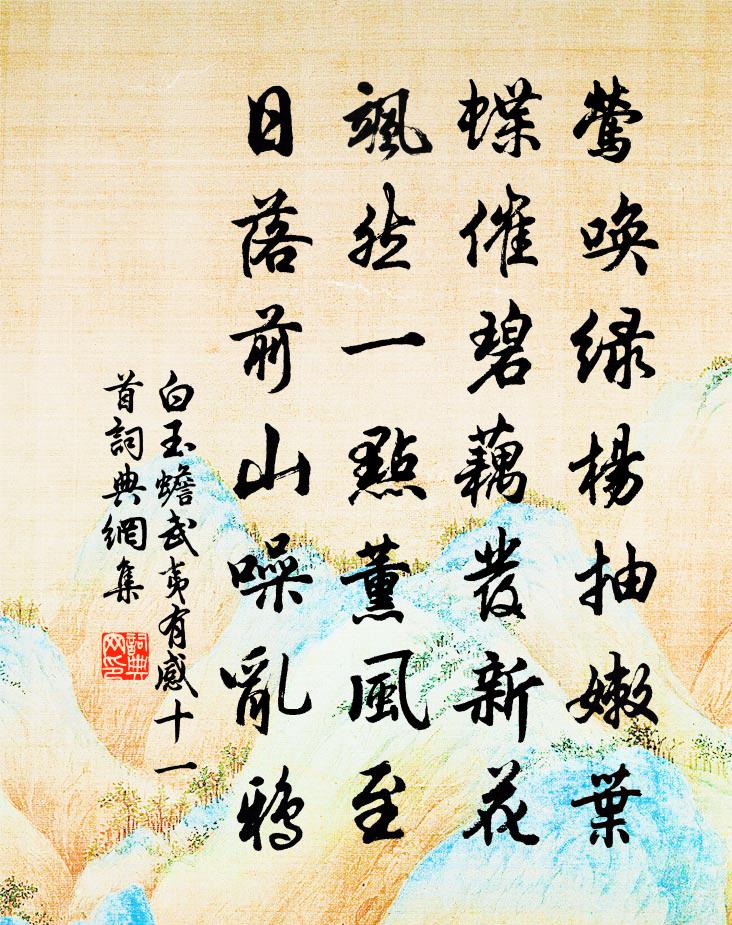 鶯喚緑楊抽嫩葉
蝶催碧藕發新花
颯然一點薰風至
日落前山噪亂鴉
白玉蟾武夷有感十一
首詞典網集
詞典
网印